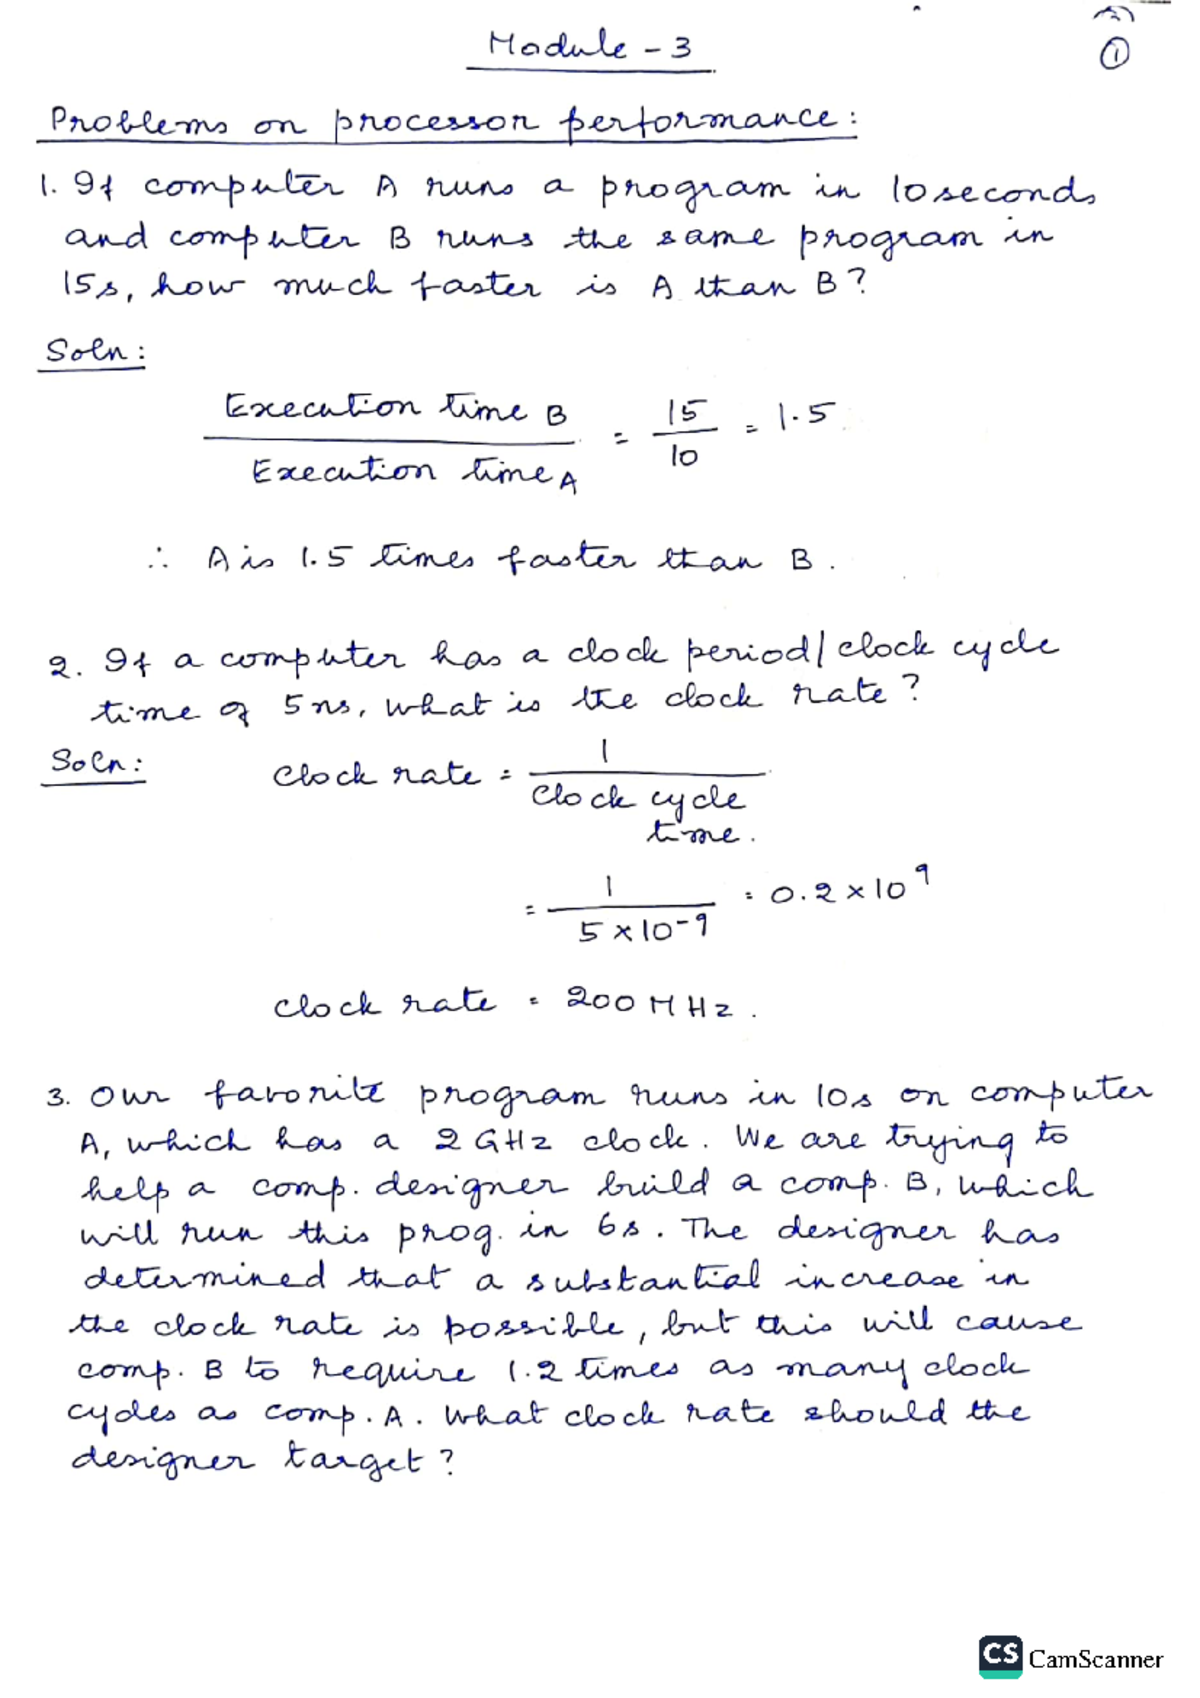 Module - 3
1
Problems on processor performance:
1. If computer A runs a program in 10 seconds
and computer B runs the same program in
15s, how much faster is A than B?
Soln:
Execution time B / Execution time A = 15/10 = 1.5
∴ A is 1.5 times faster than B.
2. If a computer has a clock period/clock cycle
time of 5 ns, what is the clock rate?
Soln: clock rate = 1 / clock cycle time.
= 1 / 5×10⁻⁹ = 0.2×10⁹
clock rate = 200 MHz.
3. Our favorite program runs in 10s on computer
A, which has a 2 GHz clock. We are trying to
help a comp. designer build a comp. B, which
will run this prog. in 6s. The designer has
determined that a substantial increase in
the clock rate is possible, but this will cause
comp. B to require 1.2 times as many clock
cycles as comp. A. What clock rate should the
designer target?
CS CamScanner